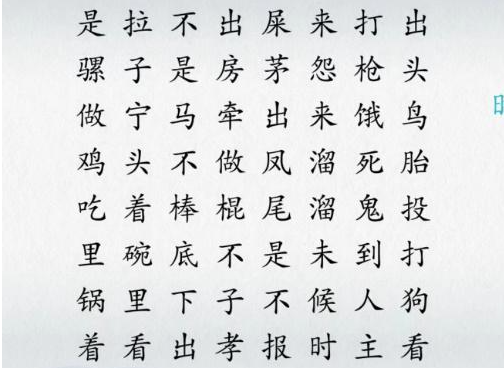 是拉不出屎来打出
骡子是房茅怨枪头
做宁马牵出来饿鸟
鸡头不做凤溜死胎
吃着棒棍尾溜鬼投
里碗底不是未到打
锅里下子不候人狗
着看出孝报时主看